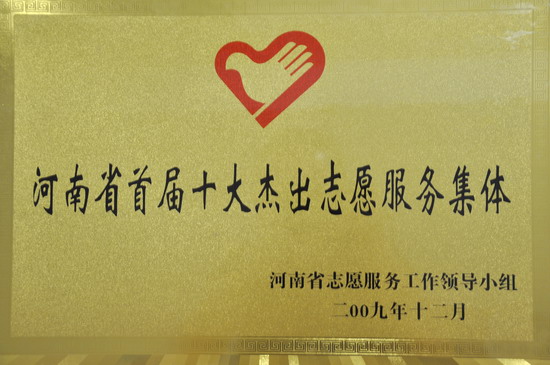 河南省首届十大杰出志愿服务集体
河南省志愿服务工作领导小组
二00九年十二月